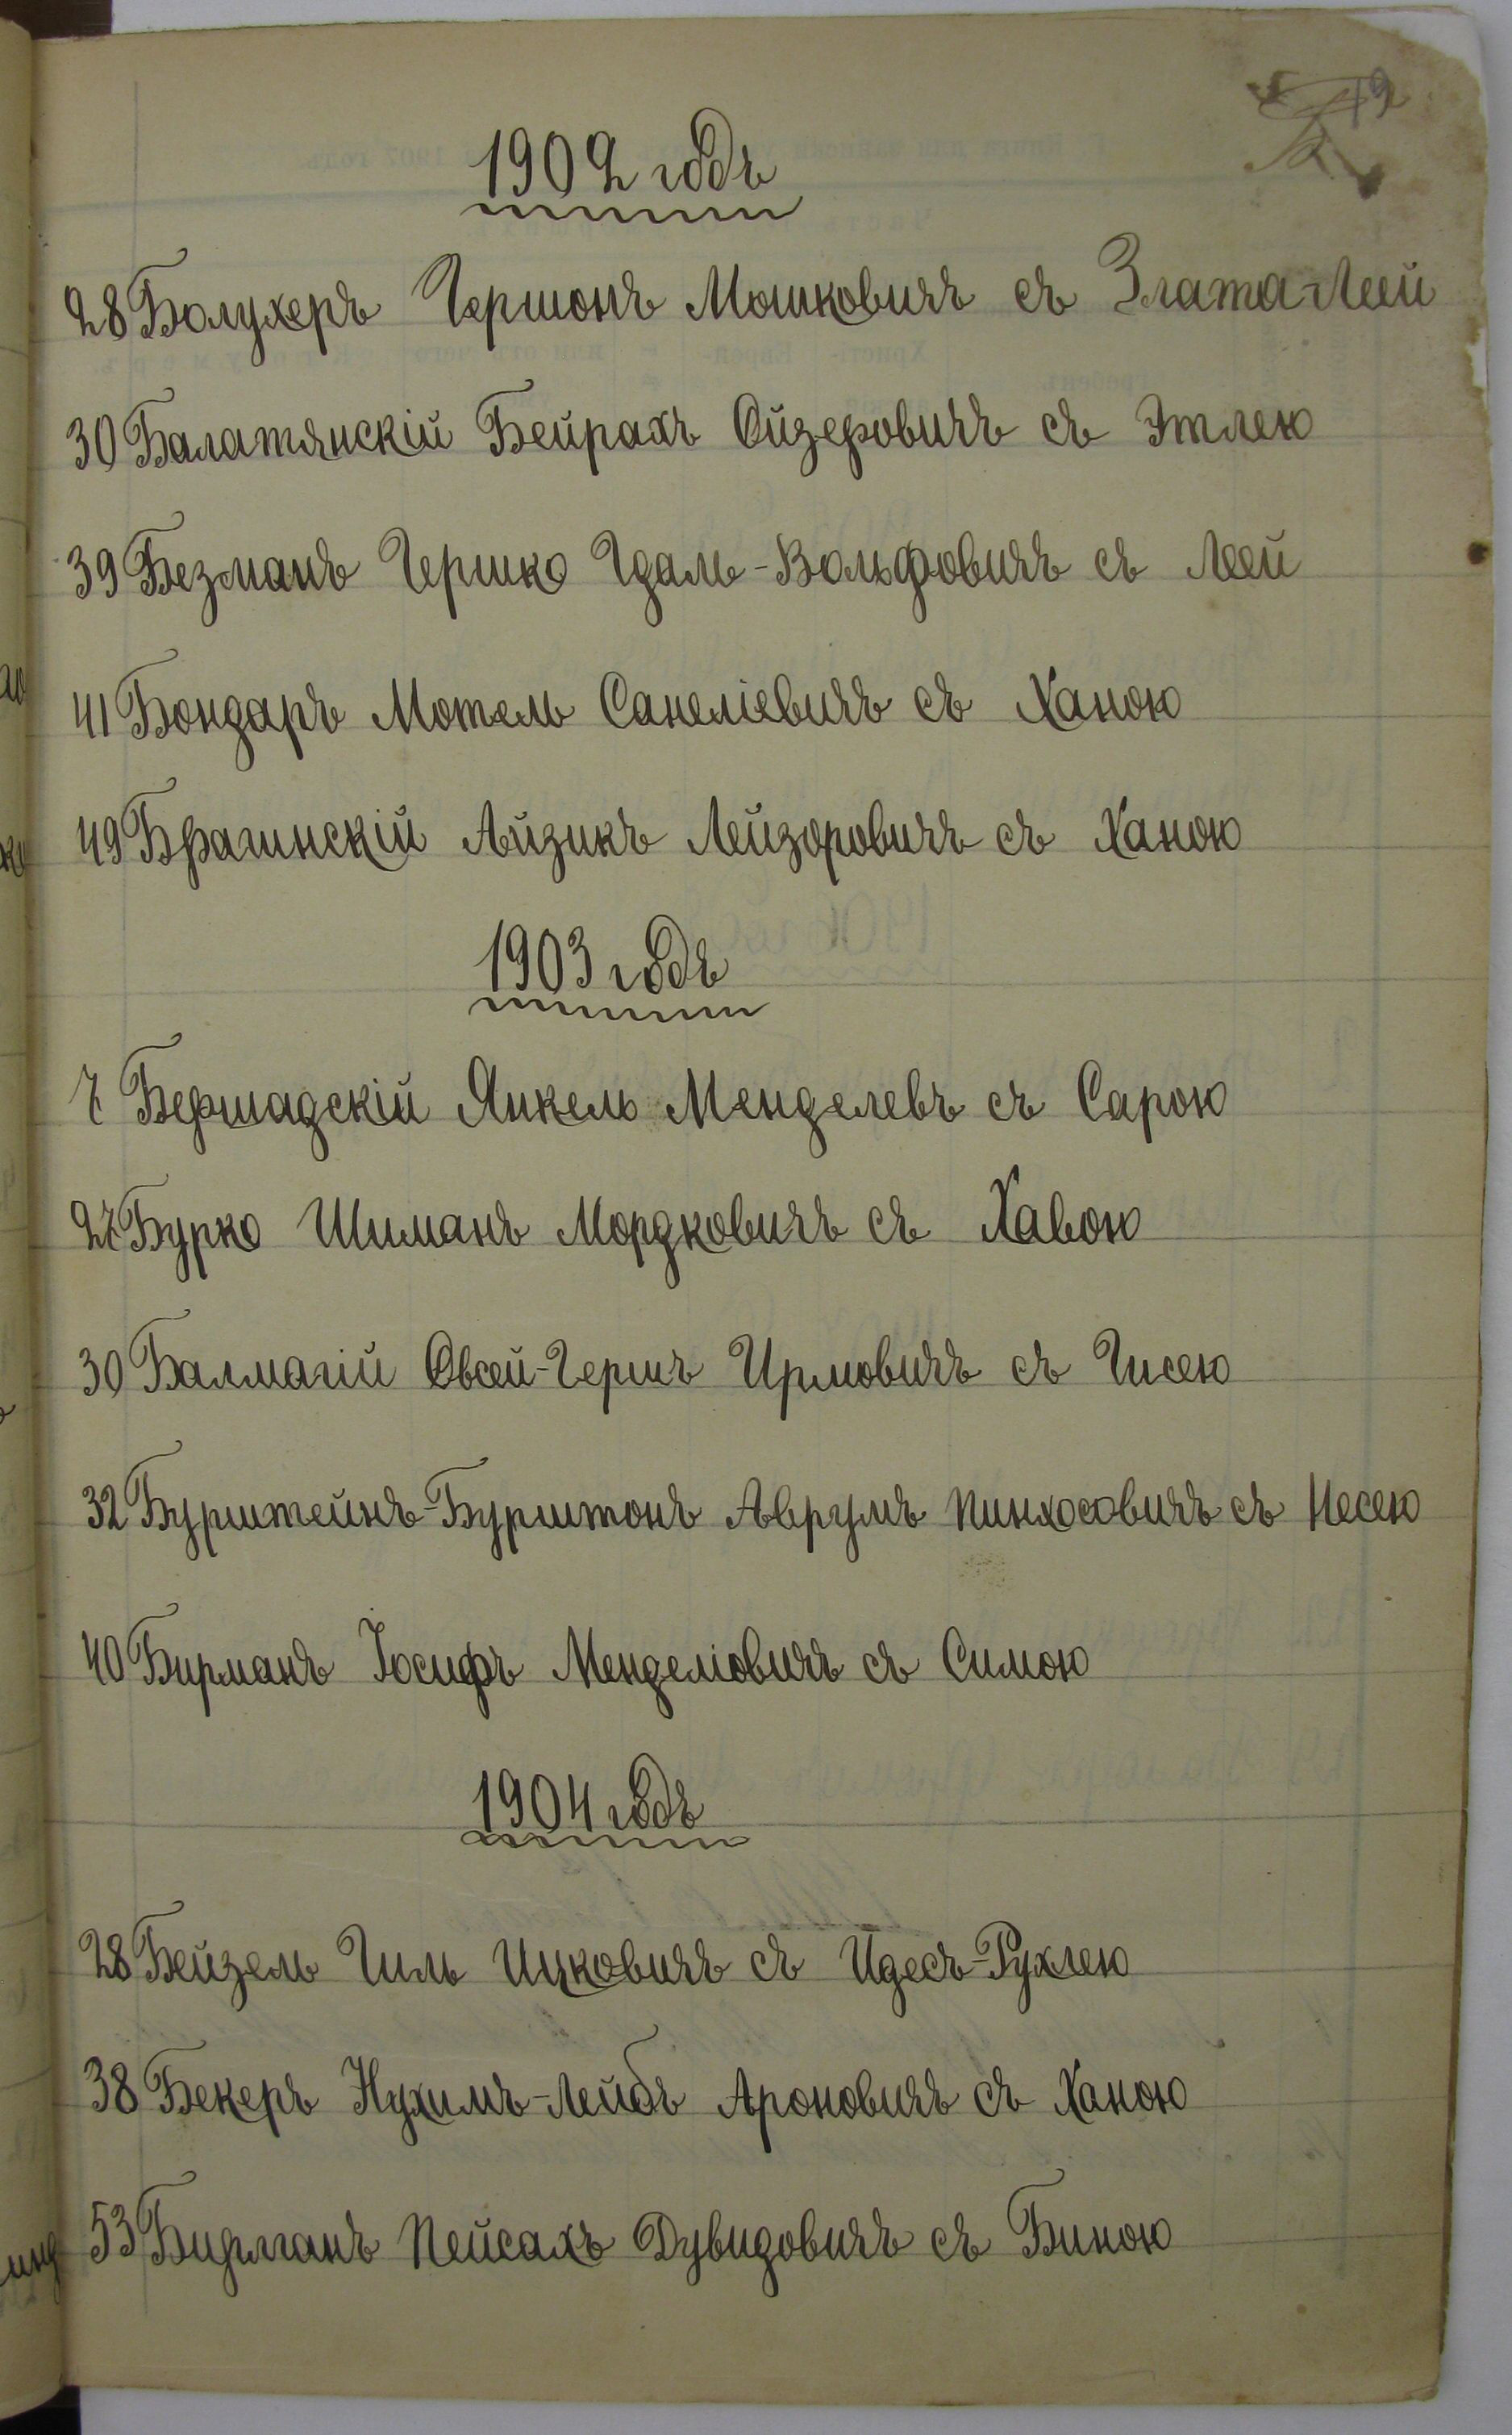 19
1902 годъ
28 Болухеръ Гершонъ Мошковичъ съ Злата-Леей
30 Балатянскій Бейрахъ Ойзеровичъ съ Этлею
39 Безманъ Гершко Гдаль-Вольфовичъ съ Леей
41 Бондаръ Мотель Санеліевичъ съ Ханою
49 Брагинскій Айзикъ Лейзоровичъ съ Ханою
1903 годъ
7 Бершадскій Янкель Менделевъ съ Сарою
27 Бурко Шиманъ Мордковичъ съ Хавою
30 Балмагій Овсей-Гершъ Ирмовичъ съ Гисею
32 Бурштейнъ-Бурштонъ Аврумъ Пинхосовичъ съ Несею
40 Бирманъ Іосифъ Менделіовичъ съ Симою
1904 годъ
28 Бейзель Гиль Ицковичъ съ Идесъ-Рухлею
38 Бекеръ Нухимъ-Лейбъ Ароновичъ съ Ханою
53 Бирманъ Пейсахъ Дувидовичъ съ Биною